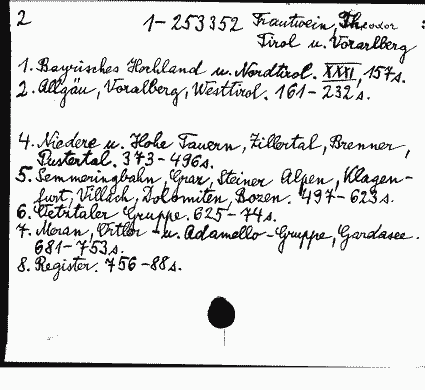 2 1-253352 Trautwein, Theodor :
Tirol u. Vorarlberg
1. Bayrisches Hochland u. Nordtirol. XXXI, 157s.
2. Allgäu, Voralberg, Westtirol. 161-232s.
4. Niedere u. Hohe Tauern, Zillertal, Brenner,
Pustertal. 373-496s.
5. Semmeringbahn, Graz, Steiner Alpen, Klagen-
furt, Villach, Dolomiten, Bozen. 497-623s.
6. Oetztaler Gruppe. 625-74s.
7. Meran, Ortler- u. Adamello-Gruppe, Gardasee.
681-753s.
8. Register. 756-88s.